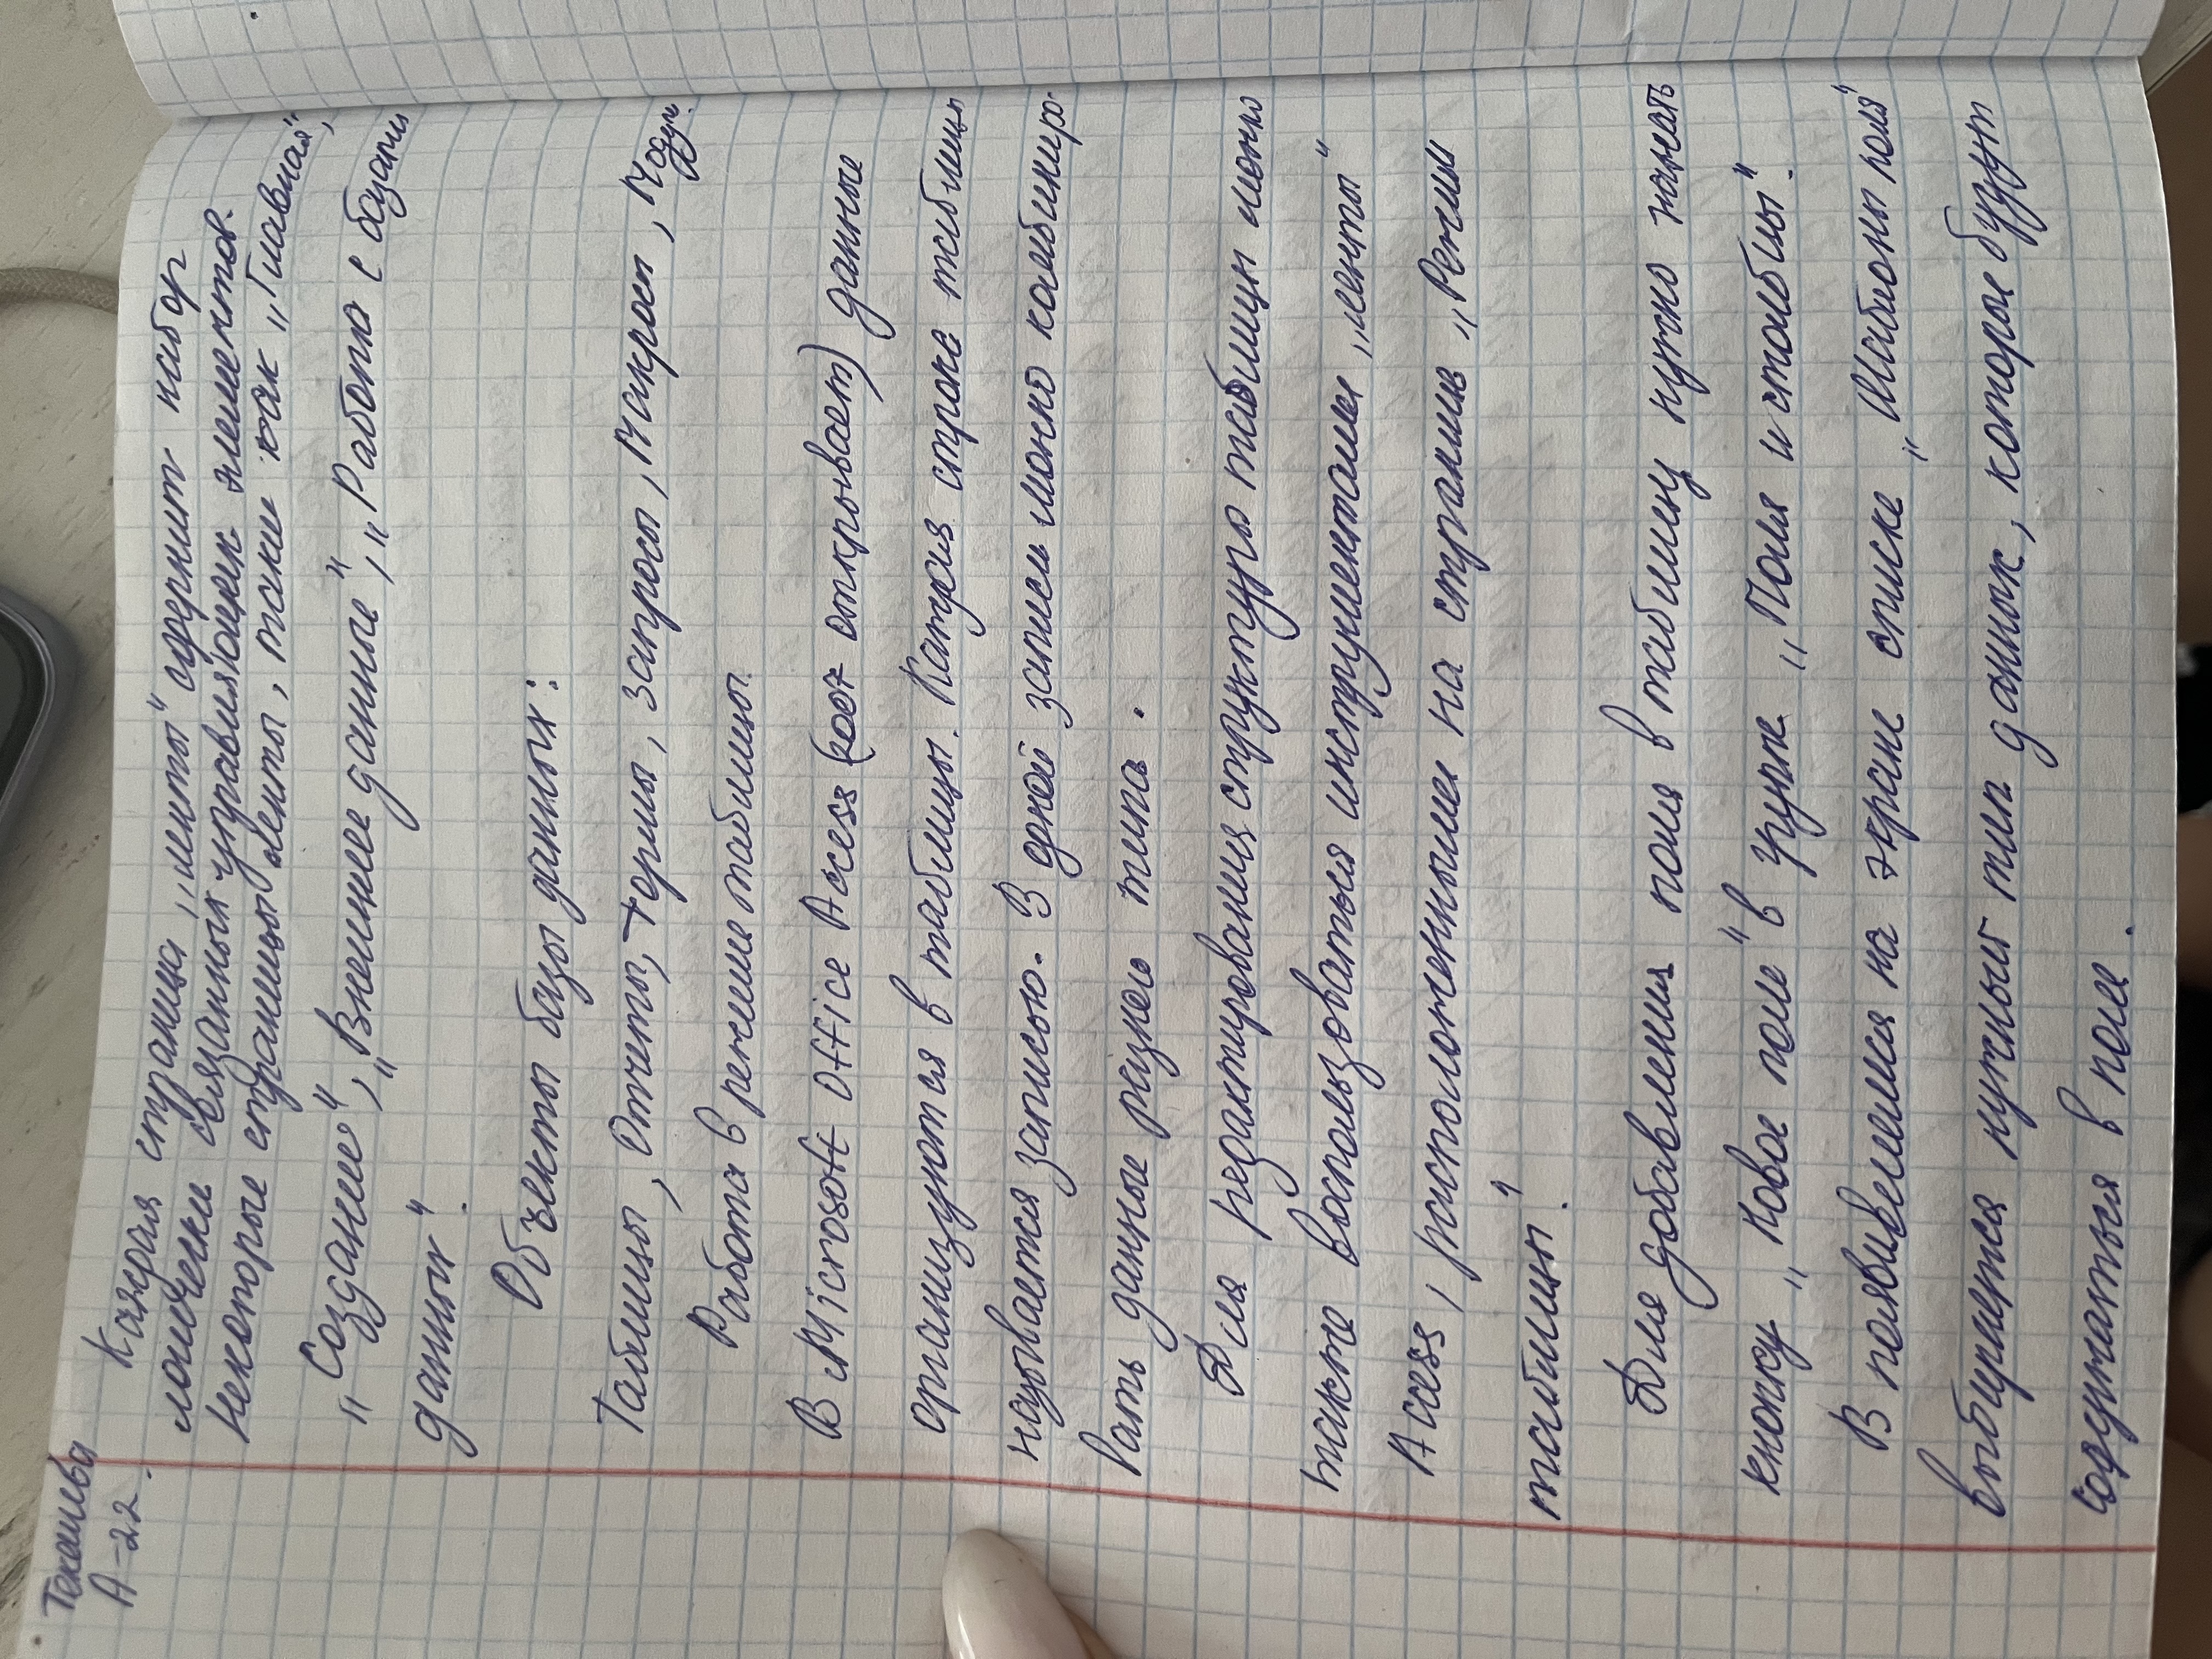 Текаева
А-22.
Каждая страница „ленты" содержит набор
логически связанных управляющих элементов.
Некоторые страницы ленты, такие как „Главная",
„Создание", „Внешние данные", „Работа с базами
данных".
Объекты базы данных:
Таблицы, Отчеты, Формы, запросы, Макросы, Модули.
Работа в режиме таблицы.
В Microsoft Office Access ( открывает) данные
организуются в таблицы. Каждая строке таблицы
называется записью. В одной записи можно комбинир-
вать данные разного типа.
Для редактирования структуры таблицы можно
также воспользоваться инструментами „ленты"
Access, расположенными на странице „Режим
таблицы".
Для добавления поля в таблицу нужно нажать
кнопку „Новое поле" в группе „Поля и столбцы".
В появившемся на экране списке „Шаблоны поля"
выбирается нужный тип данных, которое будут
содержаться в поле.